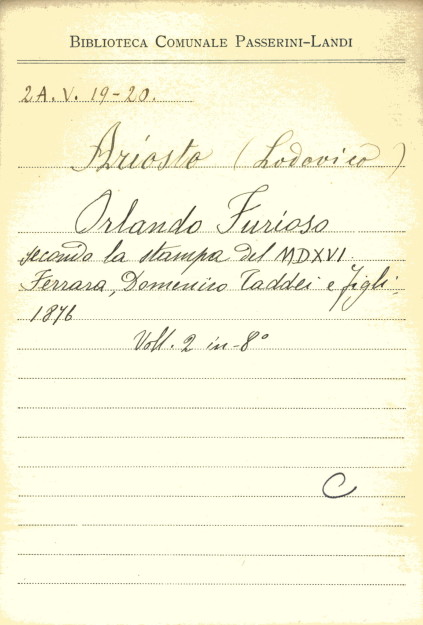 BIBLIOTECA COMUNALE PASSERINI-LANDI
2A.V. 19-20.
Ariosto (Lodovico)
Orlando Furioso
secondo la stampa del MDXVI.
Ferrara, Domenico Taddei e figli,
1876
Voll. 2 in-8°
C